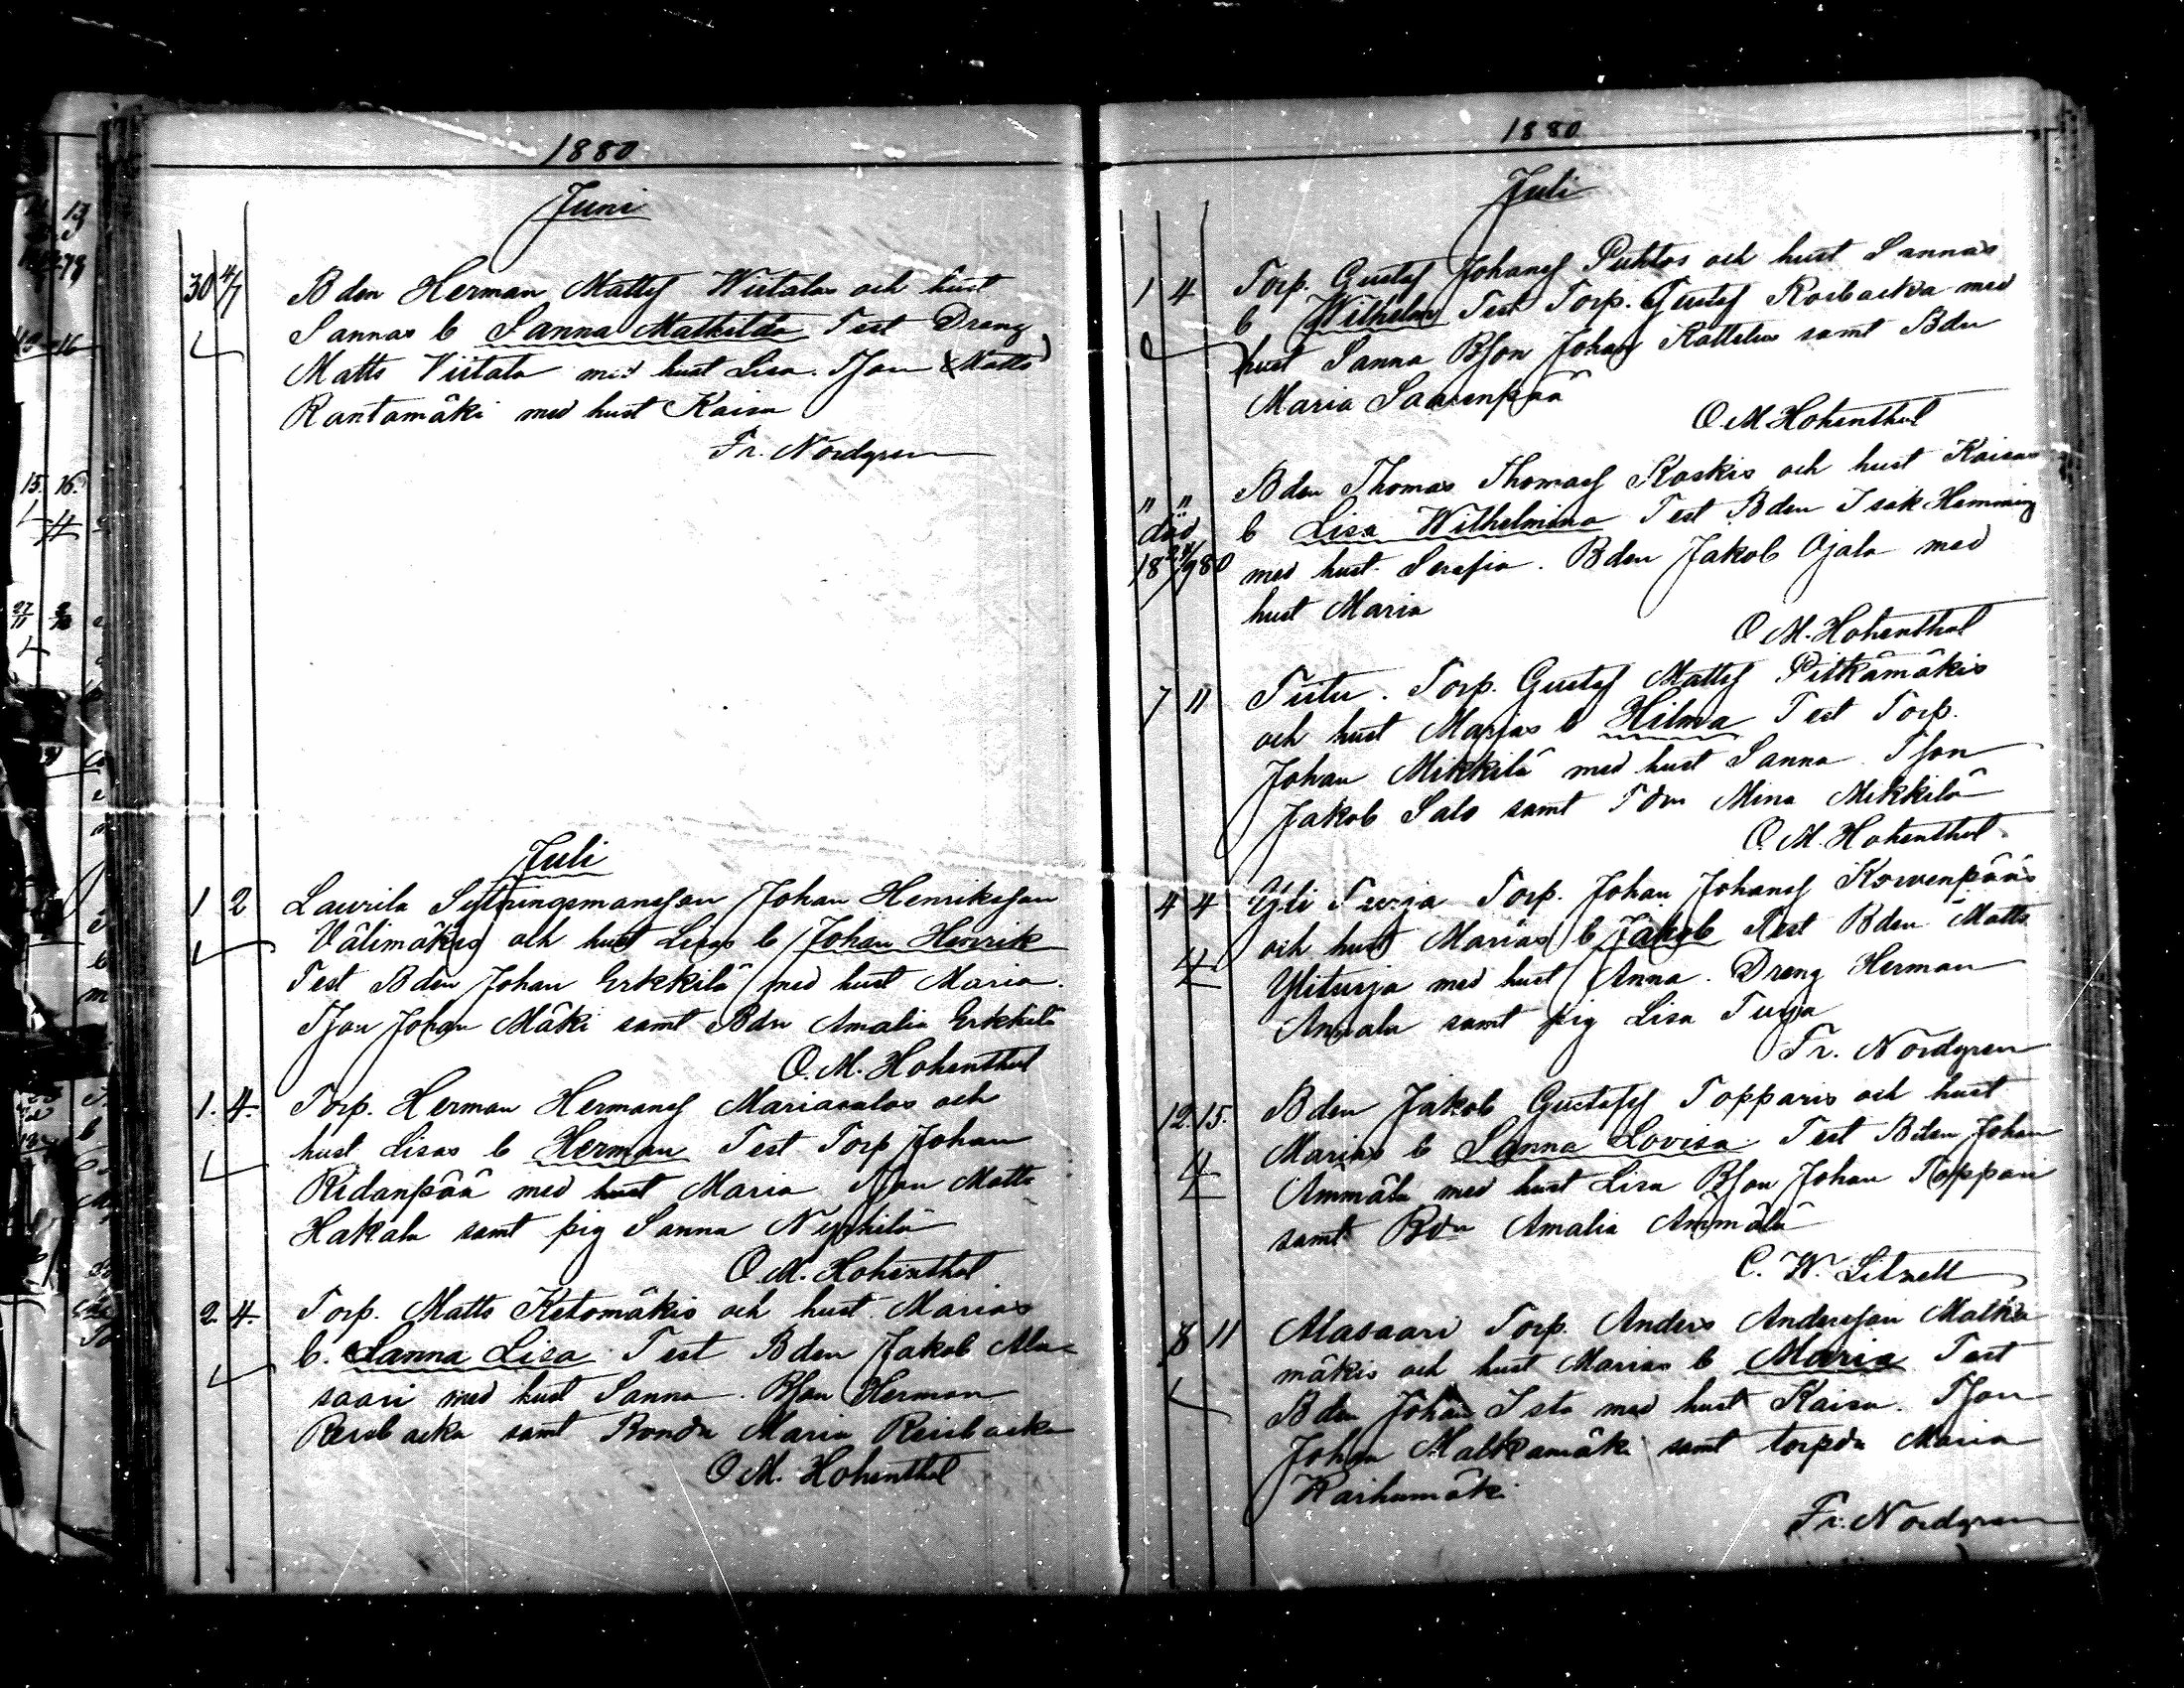 1880
Juni
30 4/7 Bden Herman Mattsf Wiitalas och hust
Sannas b Sanna Mathilda Test Dreng
Matts Viitala med hust Lisa. Tson (Matts)
Rantamäki med hust Kaisa
Fr. Nordgren
Juli
1 2 Laurila Sytningsmansson Johan Henriksson
Välimäkis och hust Lisas b Johan Henrik
Test Bden Johan Erkkilä med hust Maria.
Tson Johan Mäki samt Bdn Amalia Erkkilä
O. M. Hohenthal
1. 4. Torp. Herman Hermansf Mariasalos och
hust Lisas b Herman Test Torp Johan
Ridanpää med hust Maria Tson Matts
Hakala samt pig Sanna
O. M. Hohenthal
2. 4. Torp. Matts Ketomäkis och hust Marias
b. Sanna Lisa Test Bden Jakob Ala-
saari med hust Sanna. Bson Herman
Reisbacka samt Bonda Maria Reisbacka
O M. Hohenthal
1880
Juli
1 4 Torp. Gustaf Johansf Puhtos och hust Sannas
b Wilhelm Test Torp. Gustaf Rosbacka med
hust Sanna Bson Johan Kattelus samt Bdn
Maria Saarenpää
O. M. Hohenthal
" " Bden Thomas Thomasf Koskis och hust Kaisas
död b Lisa Wilhelmina Test Bden Isak Hemming
18 24/9 80 med hust Serafia. Bden Jakob Ojala med
hust Maria
O. M. Hohenthal
7 11 Torp. Gustaf Mattsf Pitkämäkis
och hust Marias b Hilma Test Torp.
Johan Mikkilä med hust Sanna Tson
Jakob Salo samt Tdn Mina Mikkilä
O. M. Hohenthal
4 4 Yli Turja Torp. Johan Johansf Korvenpääs
och hust Marias b Jakob Test Bden Matts
Yliturja med hust Anna. Dreng Herman
Annala samt pig Lisa Turja
Fr. Nordgren
12. 15. Bden Jakob Gustafsf Topparis och hust
Marias b Sanna Lovisa Test Bden Johan
Ammälä med hust Lisa Bson Johan Toppari
samt Bdn Amalia Ammälä
C. W. Litzell
8 11 Alasaari Torp. Anders Andersson Matka
mäkis och hust Marias b Maria Test
Bden Johan Isto med hust Kaisa. Tson
Johan Matkamäki samt torpdn Maria
Karhumäki
Fr. Nordgren